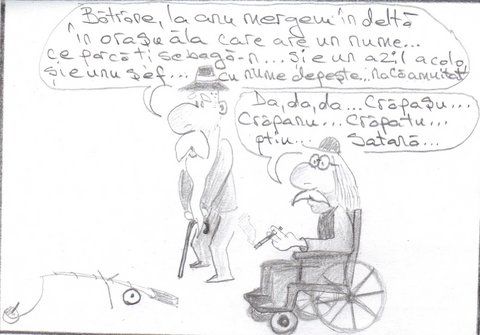 Bătrâne, la anu mergem în deltă
în orașu ăla care are un nume...
ce parcă ți se bagă-n... și e un azil acolo,
și e unu șef... cu nume de pește... na că am uitat
Da, da, da... Crăpașu...
Crăpanu... Crăpatu...
ptiu... Satară...